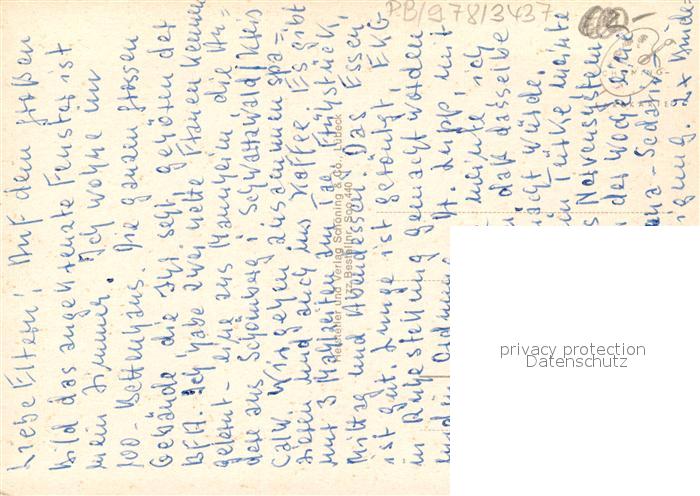 Liebe Eltern! Auf dem großen
Bild das angekreuzte Fenster ist
mein Zimmer. Ich wohne im
100-Bettenhaus. Die ganzen grossen
Gebäude die Ihr seht gehören der
BFA. Ich habe zwei nette Frauen kennen
gelernt - eine aus Mannheim die An-
dere aus Schömberg i. Schwarzwald Kreis
Calw. Wir gehen zusammen spa-
zieren und auch ins Kaffee. Es gibt
nur 3 Mahlzeiten am Tag Frühstück,
Mittag und Abendessen. Das Essen
ist gut. Lunge ist geröntgt, EKG
in Ruhestellung gemacht worden
und in Ordnung. Dr. Lupp, mit
meinte, ich
daß dasselbe
macht würde.
in Türke meinte
Nervensystem
der Woche eine
Sedativ
PB/978/3437
SCHÖNING
Hersteller und Verlag Schöning & Co., Lübeck
ZZ. Bestellnr. Soo 440
privacy protection
Datenschutz